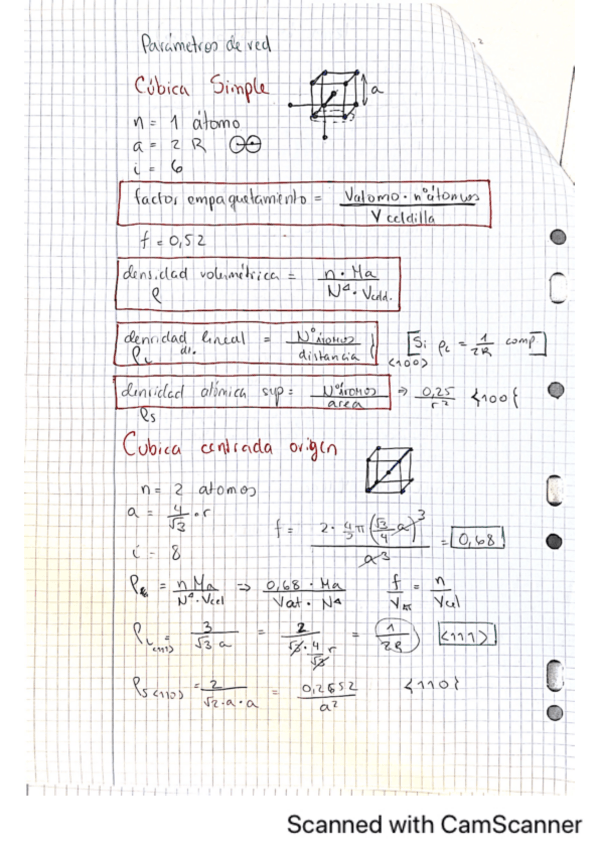 Parámetros de red
Cúbica Simple
a
n = 1 átomo
a = 2 R
i = 6
factor empaquetamiento = Vatomo · nºátomos / Vceldilla
f = 0,52
densidad volumétrica = n · Ma / Nᴬ · Vceld.
ρ
densidad lineal = NºÁTOMOS / distancia } [Si ρL = 1/2R comp]
ρL dir. <100>
densidad atómica sup = NºÁTOMOS / area => 0,25 / r² {100{
ρs
Cubica centrada origen
n = 2 atomos
a = 4/√3 · r
f = 2 · 4/3 π (√3/4 a)³ / a³ = 0,68
i = 8
ρ = n Ma / Nᴬ · Vcel => 0,68 · Ma / Vat · Nᴬ f/Vat = n/Vcel
ρL <111> = 3 / √3 a = 2 / √3 · 4/√3 r = 1/2R <111>
ρs <110> = 2 / √2 · a · a = 0,2652 / a² {110{
Scanned with CamScanner